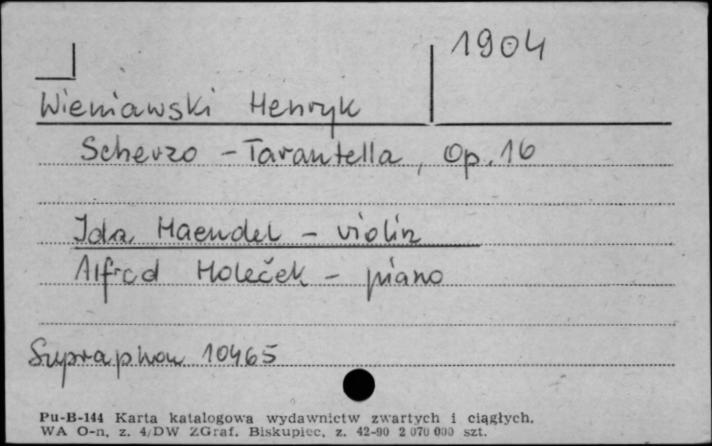 1904
Wieniawski Henryk
Scherzo - Tarantella, Op. 16
Ida Haendel - violin
Alfred Holeček - piano
Supraphon 10465
Pu-B-144 Karta katalogowa wydawnictw zwartych i ciągłych.
WA O-n, z. 4/DW ZGraf. Biskupiec, z. 42-90 2 070 000 szt.